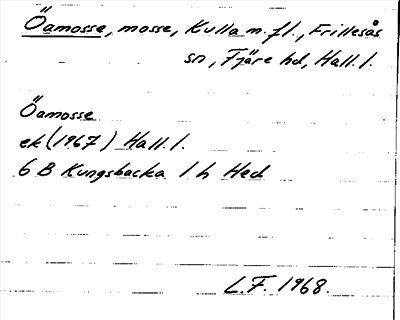 Öamosse, mosse, Kulla m. fl., Frillesås
sn, Fjäre hd, Hall. l.
Öamosse
ek (1967) Hall. l.
6 B Kungsbacka 1 h Hed
L.F. 1968.